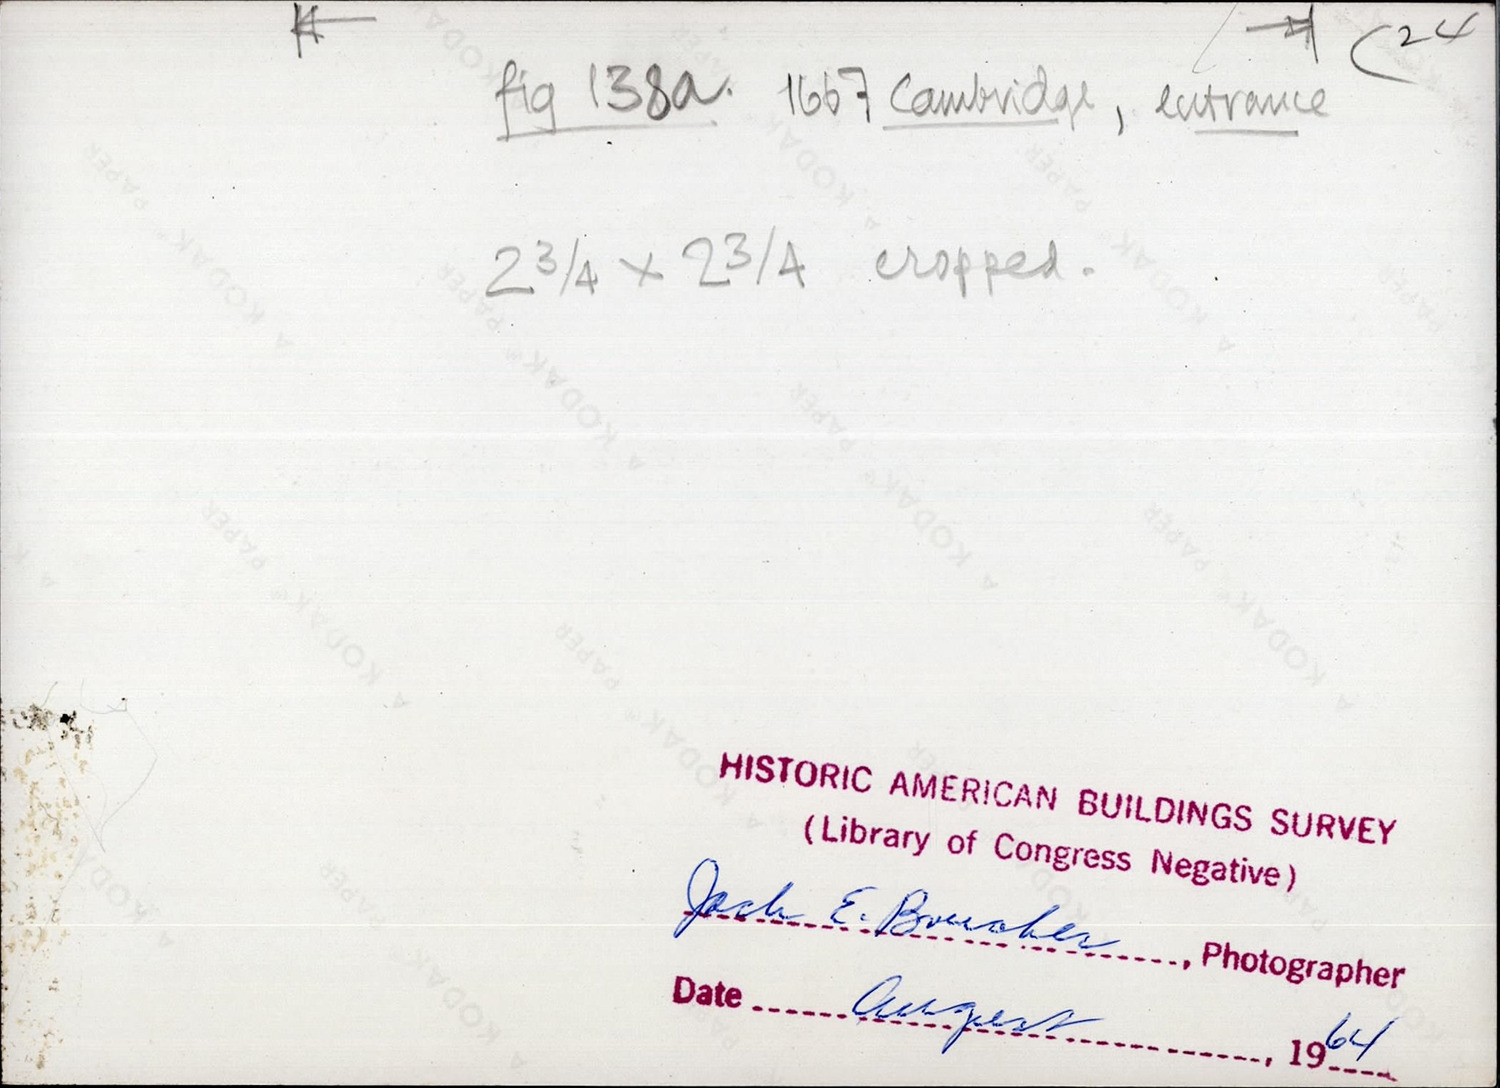 C24
fig 138a. 1667 Cambridge, entrance
2 3/4 x 2 3/4 cropped.
HISTORIC AMERICAN BUILDINGS SURVEY
(Library of Congress Negative)
Jack E. Boucher, Photographer
Date August, 1964
A KODAK® PAPER